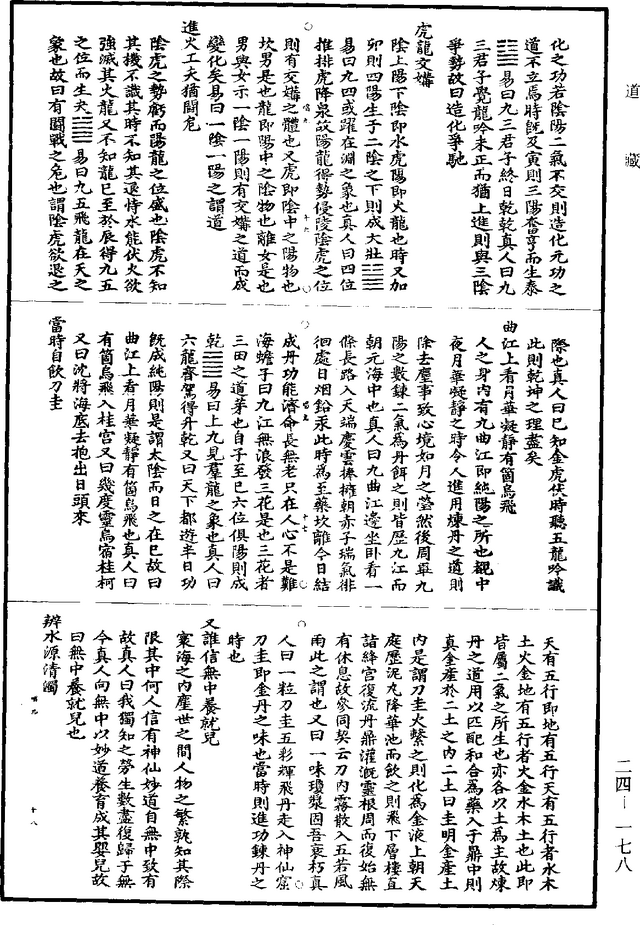 道藏
化之功若陰陽二氣不交則造化元功之
道不立焉時既及寅則三陽奮亨而生泰
䷊易曰九三君子終日乾乾真人曰九
三君子覺龍吟未正而猶上進則與三陰
爭勢故曰造化爭馳
虎龍交媾
陰上陽下陰即水虎陽即火龍也時又加
卯則四陽生于二陰之下則成大壯䷡
易曰九四或躍在淵之象也真人曰四位
推排虎降泉故陽龍得勢侵陵陰虎之位
則有交媾之體也又虎即陰中之陽物也
坎男是也龍即陽中之陰物也離女是也
男與女示一陰一陽則有交媾之道而成
變化矣易曰一陰一陽之謂道
進火工夫猶鬪危
陰虎之勢虧而陽龍之位盛也陰虎不知
其機不識其時不知其退恃水能伏火欲
強滅其火龍又不知龍已至於辰得九五
之位而生夬䷪易曰九五飛龍在天之
象也故曰有鬪戰之危也謂陰虎欲退之
際也真人曰已知金虎伏時聽五龍吟議
此則乾坤之理盡矣
曲江上看月華凝靜有箇烏飛
人之身內有九曲江即純陽之所也觀中
夜月華凝靜之時令人進用煉丹之道則
除去塵事致心境如月之瑩然後周畢九
陽之數鍊二氣為丹餌之則皆歷九江而
朝元海中也真人曰九曲江邊坐臥看一
條長路入天端慶雲捧擁朝赤子瑞氣徘
徊處日烟鉛汞此時為至藥坎離今日結
成丹功能濟命長無老只在人心不是難
海蟾子曰九江無浪發三花是也三花者
三田之道茅也自子至巳六位俱陽則成
乾䷀易曰上九見羣龍之象也真人曰
六龍齊駕得升乾又曰天下都遊半日功
既成純陽則是謂太陰而日之在巳故曰
曲江上看月華凝靜有箇烏飛也真人曰
有箇烏飛入桂宮又曰幾度靈烏宿桂柯
又曰沈將海底去抱出日頭來
當時自飲刀圭
天有五行即地有五行天有五行者水木
土火金地有五行者火金水木土也此即
皆屬二氣之所生也亦各以土為主故煉
丹之道用以匹配和合為藥入于鼎中則
真金產於二土之內二土曰圭明金產土
內是謂刀圭火繫之則化為金液上朝天
庭歷泥丸降華池而飲之則飛下層樓直
詣絳宮復流丹鼎灌溉靈根周而復始無
有休息故參同契云刀內霧散入五若風
雨此之謂也又曰一味瓊漿因吾衰朽真
人曰一粒刀圭五彩輝飛丹走入神仙窟
刀圭即金丹之味也當時則進功鍊丹之
時也
又誰信無中養就兒
寰海之內塵世之間人物之繁孰知其際
限其中何人信有神仙妙道自無中致有
故真人曰我獨知之勞生數盡復歸于無
令真人向無中以妙道養育成其嬰兒故
曰無中養就兒也
辨水源清濁
二四—一七八